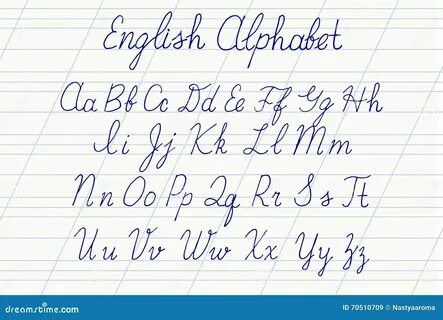 English Alphabet
Aa Bb Cc Dd Ee Ff Gg Hh
Ii Jj Kk Ll Mm
Nn Oo Pp Qq Rr Ss Tt
Uu Vv Ww Xx Yy Zz
dreamstime.com
ID 70510709 © Nastyaaroma